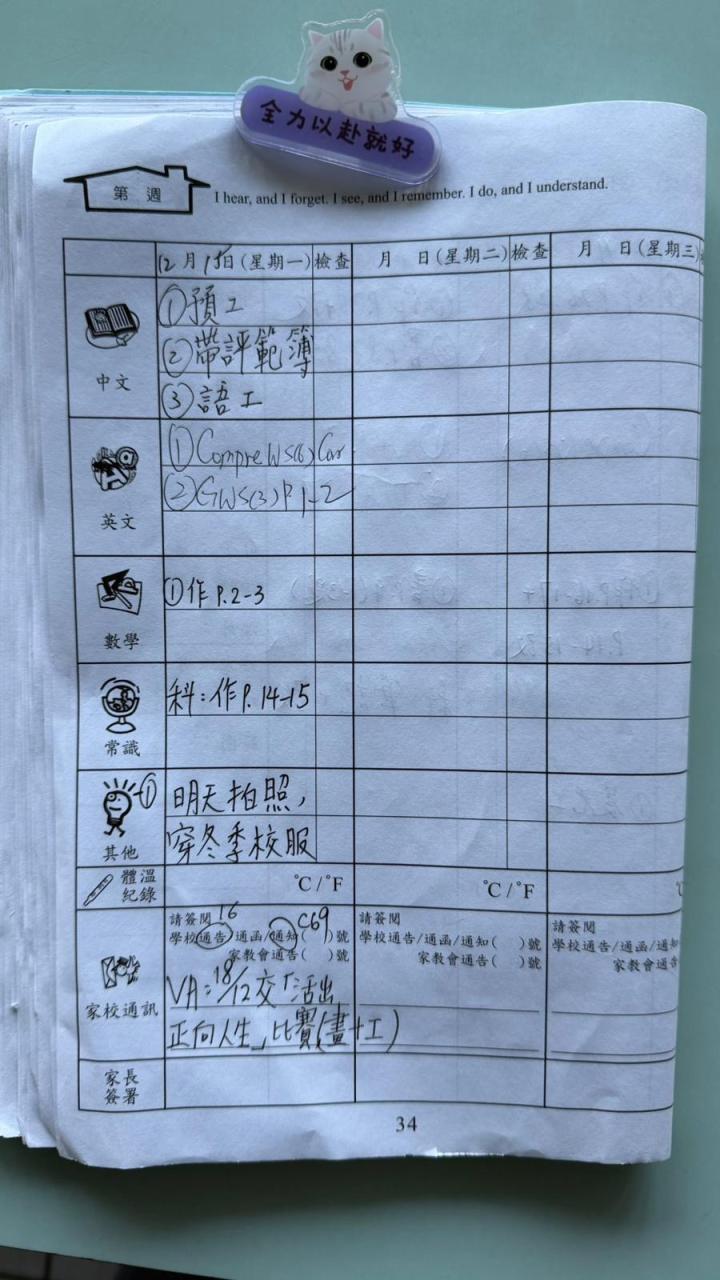 全力以赴就好
第 週
I hear, and I forget. I see, and I remember. I do, and I understand.
12月15日(星期一) 檢查 月 日(星期二) 檢查 月 日(星期三)
中文
①預工
②帶評範簿
③語工
英文
①Compre WS(6) Cor
②GWS(3) P.1-2
數學
①作 P.2-3
常識
科:作P.14-15
其他
① 明天拍照,
穿冬季校服
體溫紀錄 °C/°F °C/°F
家校通訊
請簽閱 16 C69
學校通告/通函/通知( )號
家教會通告( )號
VA:18/12交「活出
正向人生」比賽(畫+工)
請簽閱
學校通告/通函/通知( )號
家教會通告( )號
請簽閱
學校通告/通函/通知
家教會通告
家長簽署
34